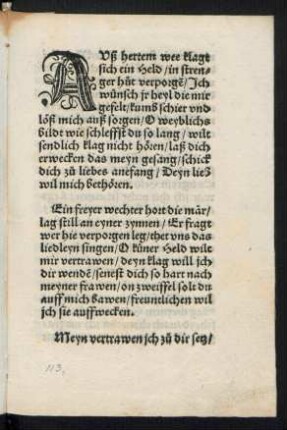 AUß hertem wee klagt
sich ein Held / in stren-
ger hůt verporgē / Jch
wünsch jr heyl die mir
gefelt / kums schier vnd
löß mich auß sorgen / O weyblichs
bildt wie schleffst du so lang / wilt
sendlich klag nicht hören / laß dich
erwecken das meyn gesang / schick
dich zů liebes anefang / Deyn lieb
wil mich bethören.
Ein freyer wechter hort die mär /
lag still an eyner zynnen / Er fragt
wer hie verporgen leg / thet vns das
liedleyn singen / O küner Held wilt
mir vertrawen / deyn klag will jch
dir wendē / senest dich so hart nach
meyner frawen / on zweiffel solt du
auff mich bawen / freuntlichen wil
jch sie auffwecken.
Meyn vertrawen jch zů dir setz /
113.